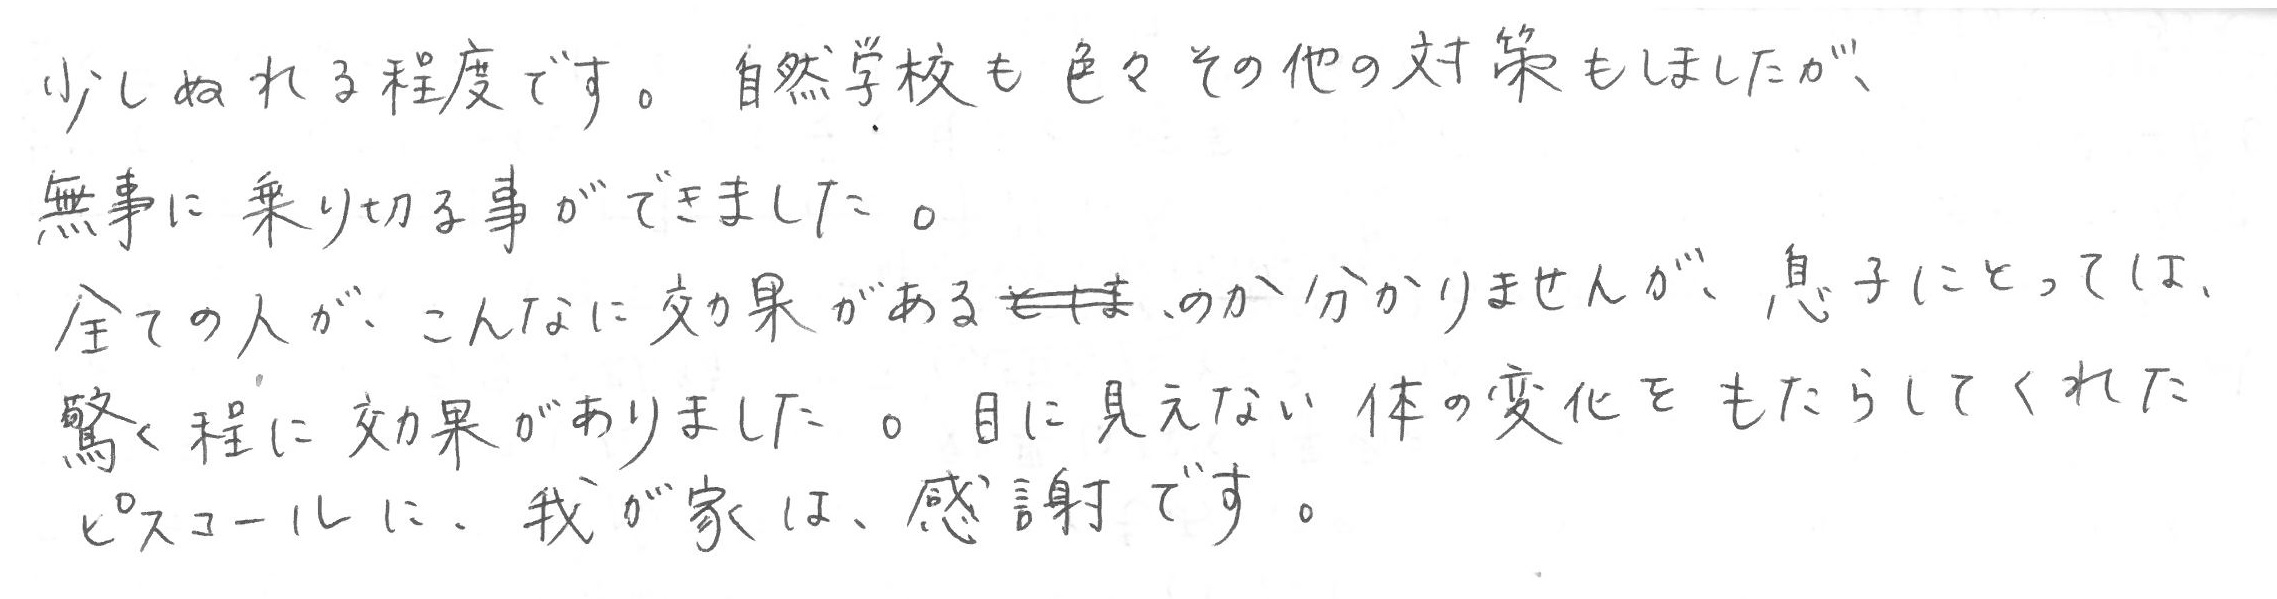 少しぬれる程度です。自然学校も色々その他の対策もしましたが、
無事に乗り切る事ができました。
全ての人が、こんなに効果があるのか分かりませんが、息子にとっては、
驚く程に効果がありました。目に見えない体の変化をもたらしてくれた
ピスコールに、我が家は、感謝です。